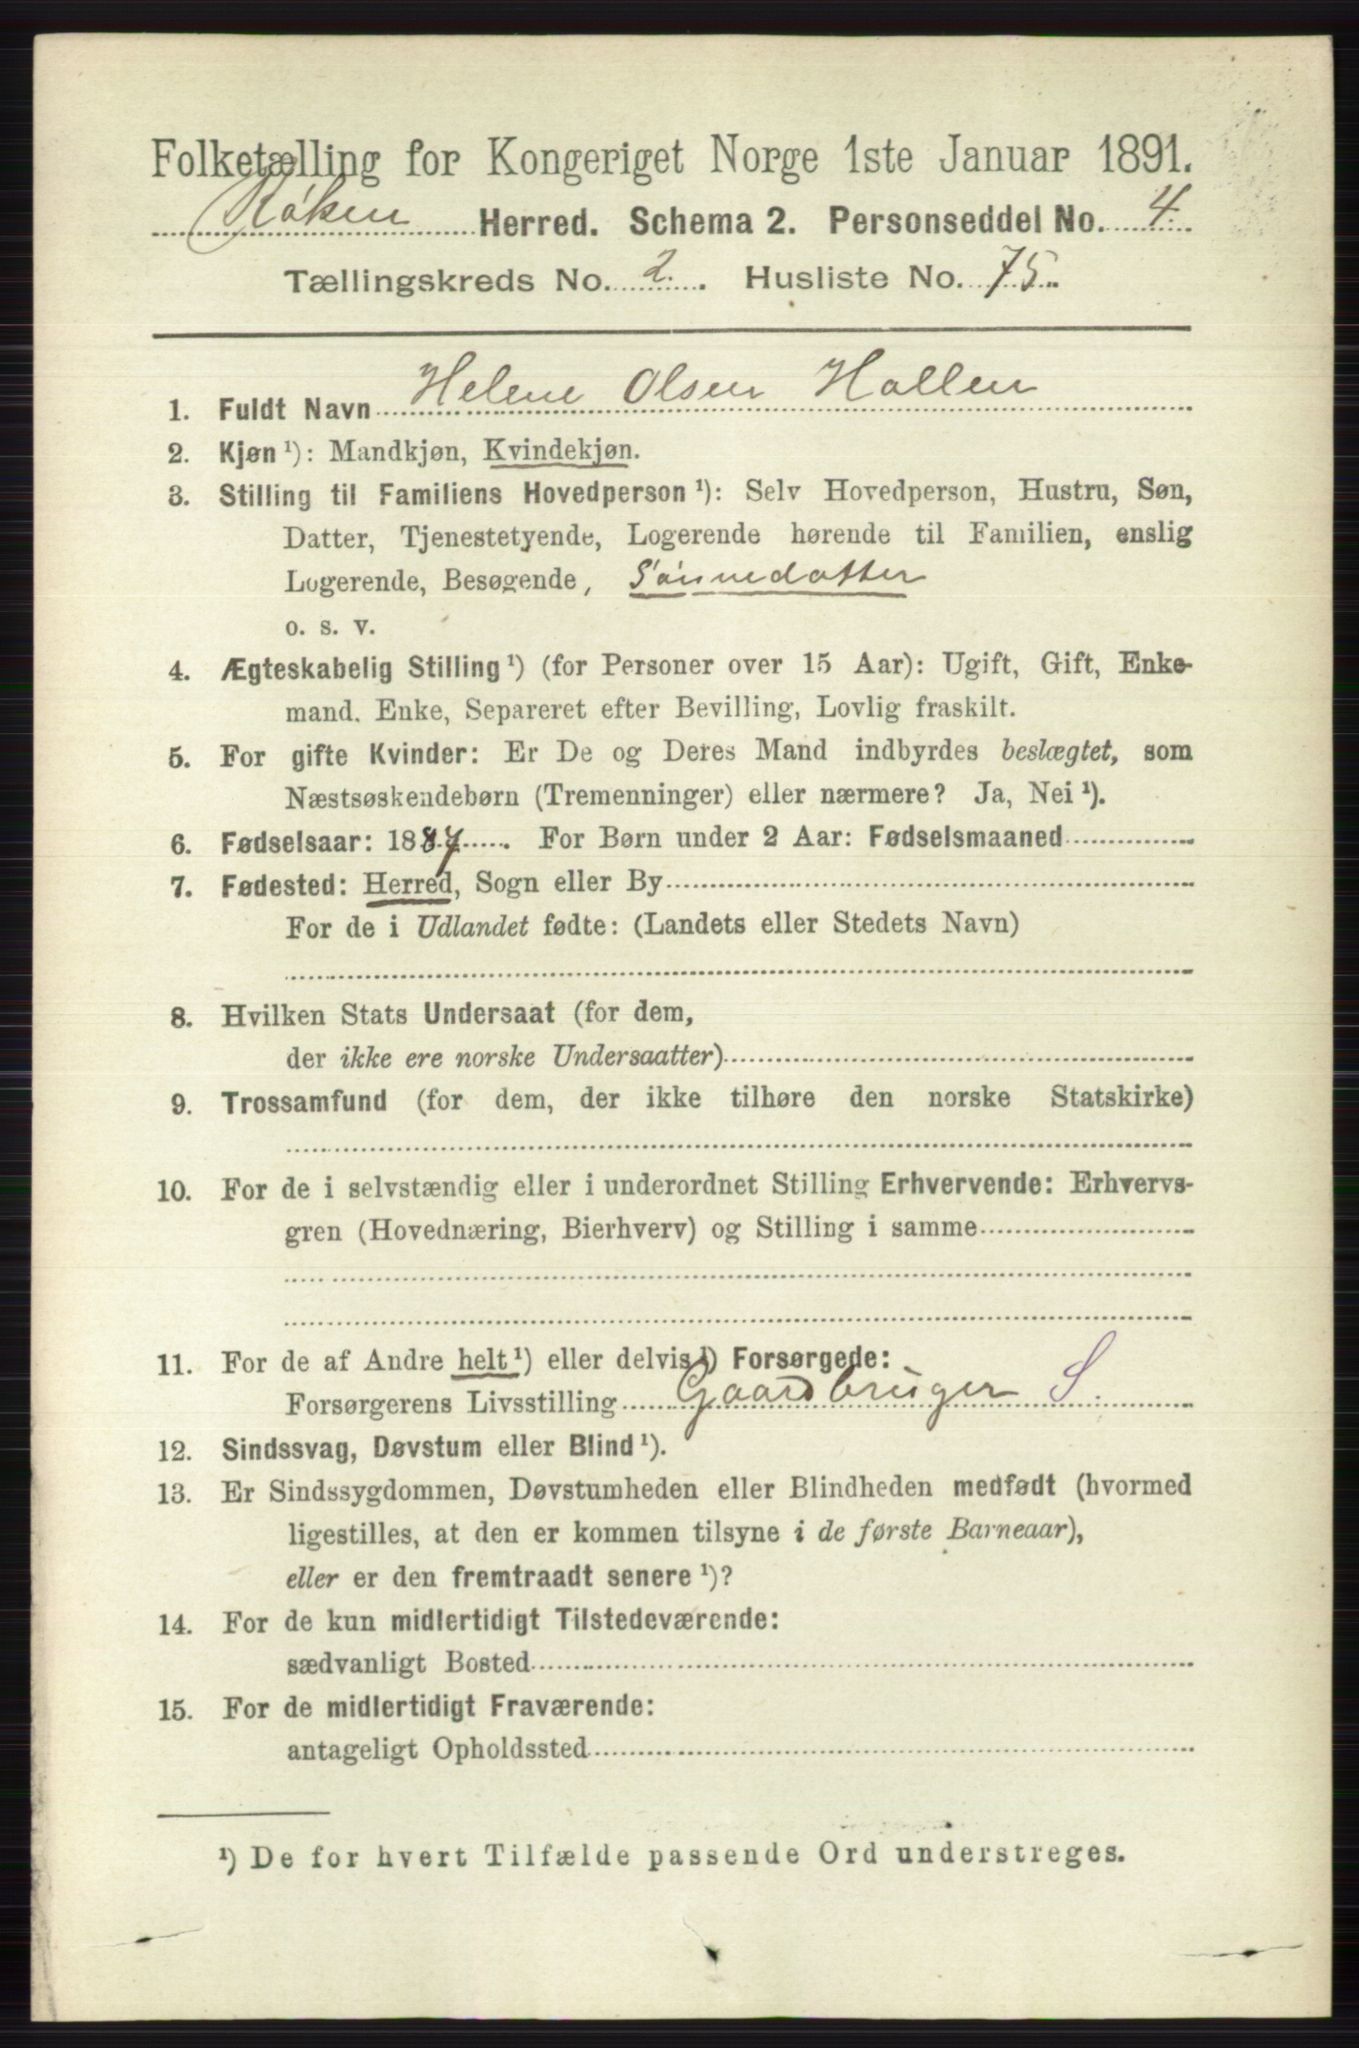 Folketælling for Kongeriget Norge 1ste Januar 1891.
Røken Herred. Schema 2. Personseddel No. 4.
Tællingskreds No. 2. Husliste No. 75.
1. Fuldt Navn Helene Olsen Hallen
2. Kjøn ¹): Mandkjøn, Kvindekjøn.
3. Stilling til Familiens Hovedperson ¹): Selv Hovedperson, Hustru, Søn,
Datter, Tjenestetyende, Logerende hørende til Familien, enslig
Logerende, Besøgende, Sønnedatter
o. s. v.
4. Ægteskabelig Stilling ¹) (for Personer over 15 Aar): Ugift, Gift, Enke-
mand, Enke, Separeret efter Bevilling, Lovlig fraskilt.
5. For gifte Kvinder: Er De og Deres Mand indbyrdes beslægtet, som
Næstsøskendebørn (Tremenninger) eller nærmere? Ja, Nei ¹).
6. Fødselsaar: 1887. For Børn under 2 Aar: Fødselsmaaned
7. Fødested: Herred, Sogn eller By
For de i Udlandet fødte: (Landets eller Stedets Navn)
8. Hvilken Stats Undersaat (for dem,
der ikke ere norske Undersaatter)
9. Trossamfund (for dem, der ikke tilhøre den norske Statskirke)
10. For de i selvstændig eller i underordnet Stilling Erhvervende: Erhvervs-
gren (Hovednæring, Bierhverv) og Stilling i samme
11. For de af Andre helt ¹) eller delvis ¹) Forsørgede:
Forsørgerens Livsstilling Gaardbruger S.
12. Sindssvag, Døvstum eller Blind ¹).
13. Er Sindssygdommen, Døvstumheden eller Blindheden medfødt (hvormed
ligestilles, at den er kommen tilsyne i de første Barneaar),
eller er den fremtraadt senere ¹)?
14. For de kun midlertidigt Tilstedeværende:
sædvanligt Bosted
15. For de midlertidigt Fraværende:
antageligt Opholdssted
¹) De for hvert Tilfælde passende Ord understreges.